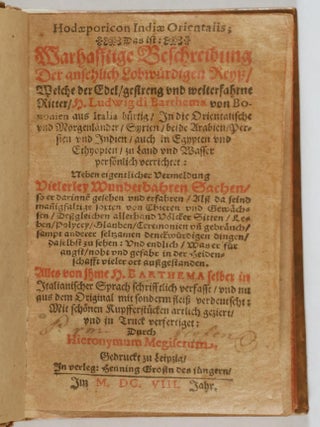 Hodæporicon Indiæ Orientalis;
Das ist:
Warhafftige Beschreibung
Der ansehlich Lobwürdigen Reyß/
Welche der Edel/ gestreng und welterfahrne
Ritter/ H. Ludwig di Barthema von Bo-
nonien aus Italia bürtig/ In die Orientalische
und Morgenländer/ Syrien/ beide Arabien/ Per-
sien und Indien/ auch in Egypten und
Ethyopien/ zu Land und Wasser
persönlich verrichtet:
Neben eigentlicher Vermeldung
Vielerley Wunderbahren Sachen/
so er darinne gesehen und erfahren/ Alß da seind
manigfaltige sorten von Thieren und Gewäch-
sen/ Deßgleichen allerhand Völcker Sitten/ Le-
ben/ Policey/ Glauben/ Ceremonien uñ gebräuch/
sampt anderer seltzamen denckwürdigen dingen/
daselbst zu sehen: Und endlich/ Was er für
angst/ noht und gefahr in der Heiden-
schafft vieler ort außgestanden.
Alles von ihme H. BARTHEMA selber in
Italianischer Sprach schrifftlich verfasst/ und nu
aus dem Original mit sonderm fleiß verdeutscht:
Mit schönen Kupfferstücken artlich geziert/
und in Truck verfertiget:
Durch
Hieronymum Megiserum.
Gedruckt zu Leipzig/
In verleg: Henning Großn des jüngern/
Im M. DC. VIII. Jahr.